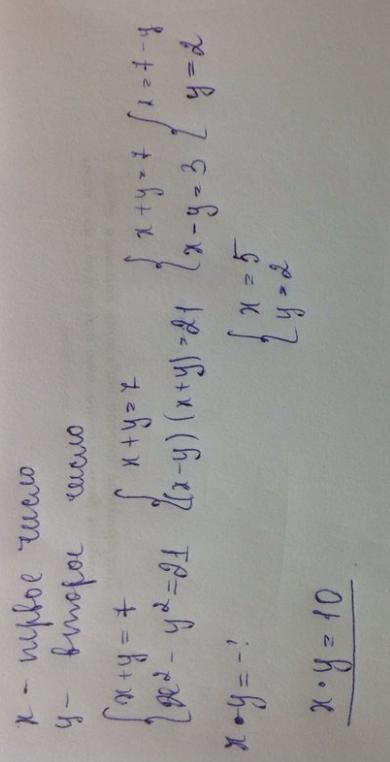 x - первое число
y - второе число
{ x+y=7
{ x² - y² =21
{ x+y=7
{ (x-y)(x+y)=21
{ x+y=7
{ x-y=3
{ x=7-y
{ y=2
x•y=-?
{ x=5
{ y=2
x•y=10